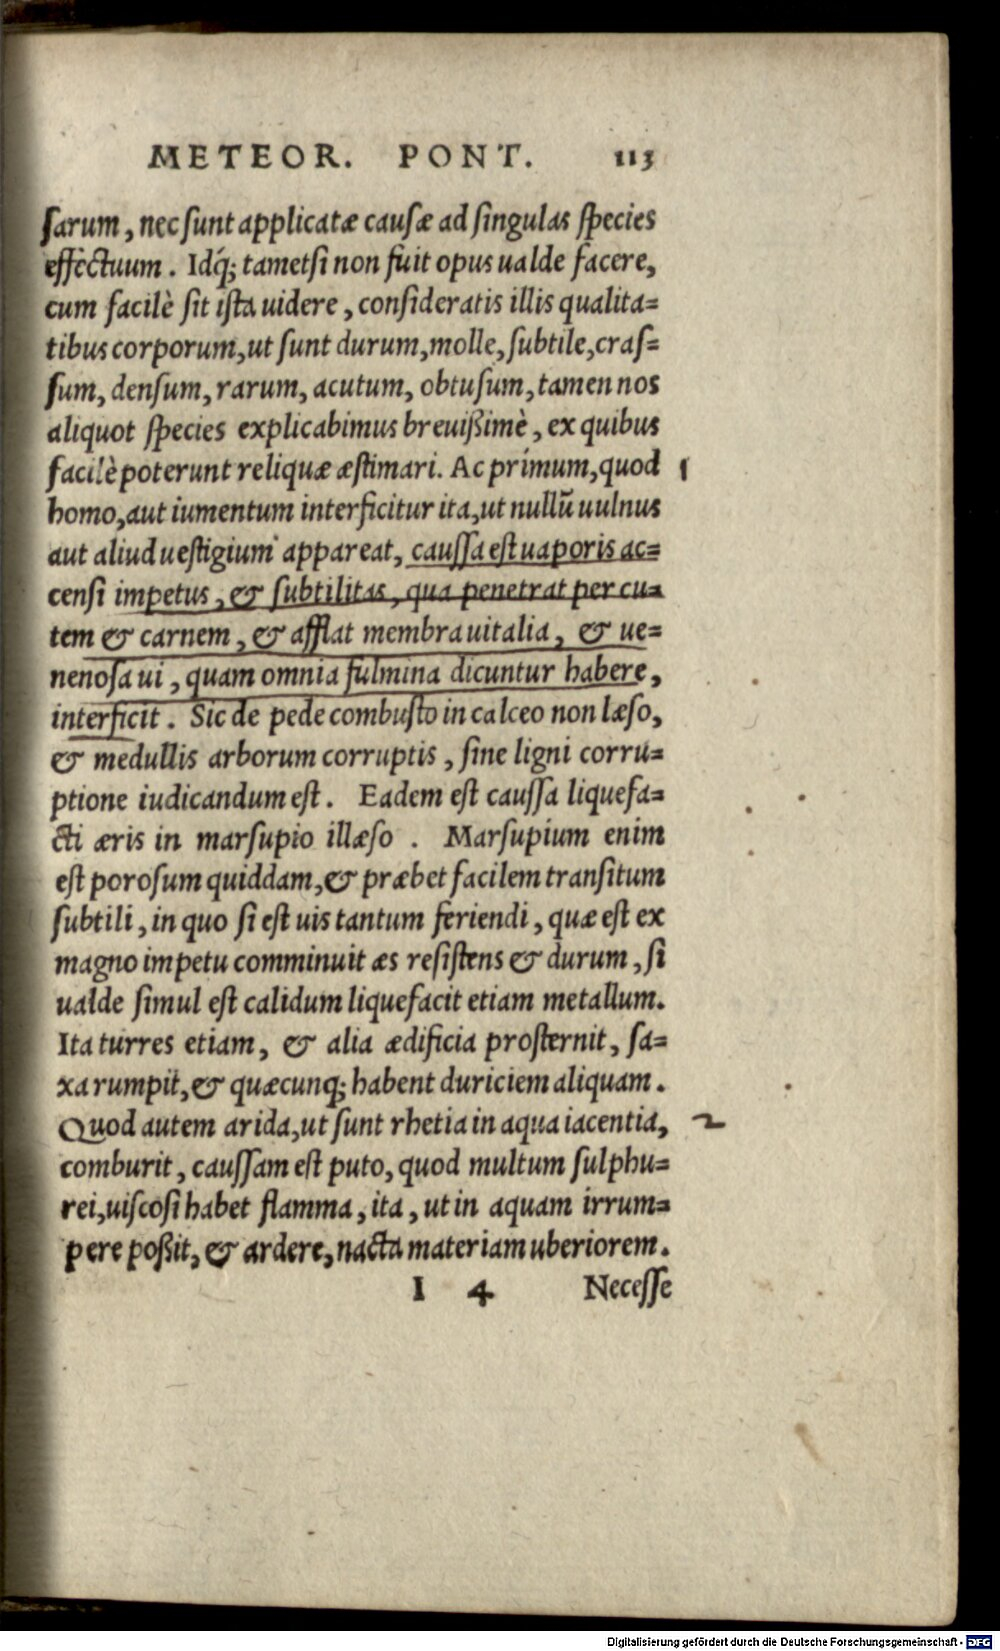 METEOR. PONT. 113
sarum, nec sunt applicatæ causæ ad singulas species
effectuum. Idq́; tametsi non fuit opus ualde facere,
cum facilè sit ista uidere, consideratis illis qualita=
tibus corporum, ut sunt durum, molle, subtile, cras=
sum, densum, rarum, acutum, obtusum, tamen nos
aliquot species explicabimus breuißimè, ex quibus
facilè poterunt reliquæ æstimari. Ac primum, quod 1
homo, aut iumentum interficitur ita, ut nullũ uulnus
aut aliud uestigium appareat, caussa est uaporis ac=
censi impetus, & subtilitas, qua penetrat per cu=
tem & carnem, & afflat membra uitalia, & ue=
nenosa ui, quam omnia fulmina dicuntur habere,
interficit. Sic de pede combusto in calceo non læso,
& medullis arborum corruptis, sine ligni corru=
ptione iudicandum est. Eadem est caussa liquefa=
cti æris in marsupio illæso. Marsupium enim
est porosum quiddam, & præbet facilem transitum
subtili, in quo si est uis tantum feriendi, quæ est ex
magno impetu comminuit æs resistens & durum, si
ualde simul est calidum liquefacit etiam metallum.
Ita turres etiam, & alia ædificia prosternit, sa=
xa rumpit, & quæcunq; habent duriciem aliquam.
Quod autem arida, ut sunt rhetia in aqua iacentia, 2
comburit, caussam est puto, quod multum sulphu=
rei, uiscosi habet flamma, ita, ut in aquam irrum=
pere poßit, & ardere, nacta materiam uberiorem.
I 4 Necesse
Digitalisierung gefördert durch die Deutsche Forschungsgemeinschaft - DFG